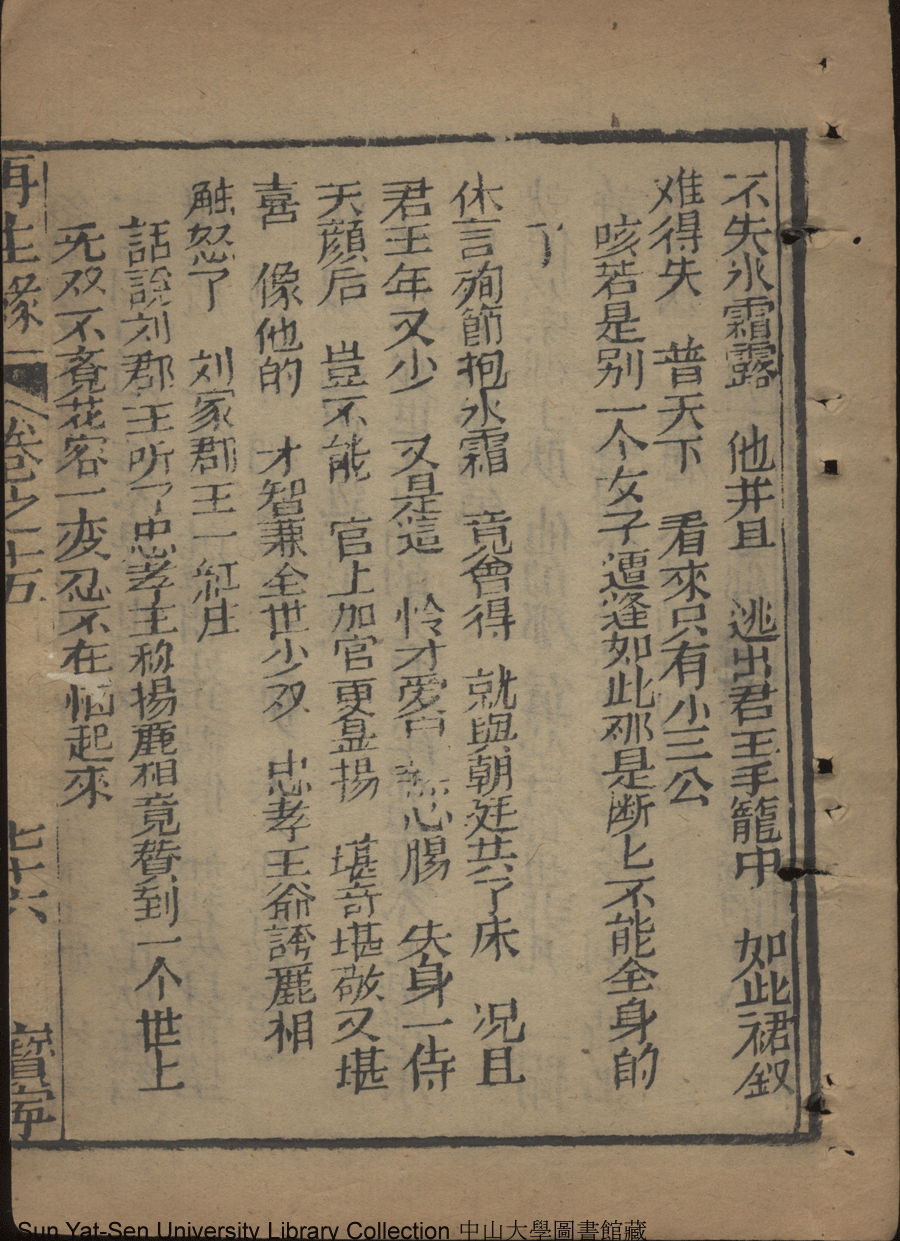 不失氷霜露 他并且 逃出君王手籠中 如此裙釵
难得失 普天下 看來只有小三公
咳若是别一个女子遭逢如此那是断上不能全身的
了
休言殉節抱氷霜 竟會得 就與朝廷共了床 况且
君王年又少 又是這 怜才愛 心腸 失身一侍
天顔后 豈不能 官上加官更显揚 堪奇堪敬又堪
喜 像他的 才智兼全世少双 忠孝王爺誇酈相
触怒了 刘家郡王一紅庄
話說刘郡主听了忠孝王称揚酈相竟賛到一个世上
无双不覚花容一变忍不在恼起來
再生緣 卷之十五 七十六 寶寧
Sun Yat-Sen University Library Collection 中山大學圖書館藏